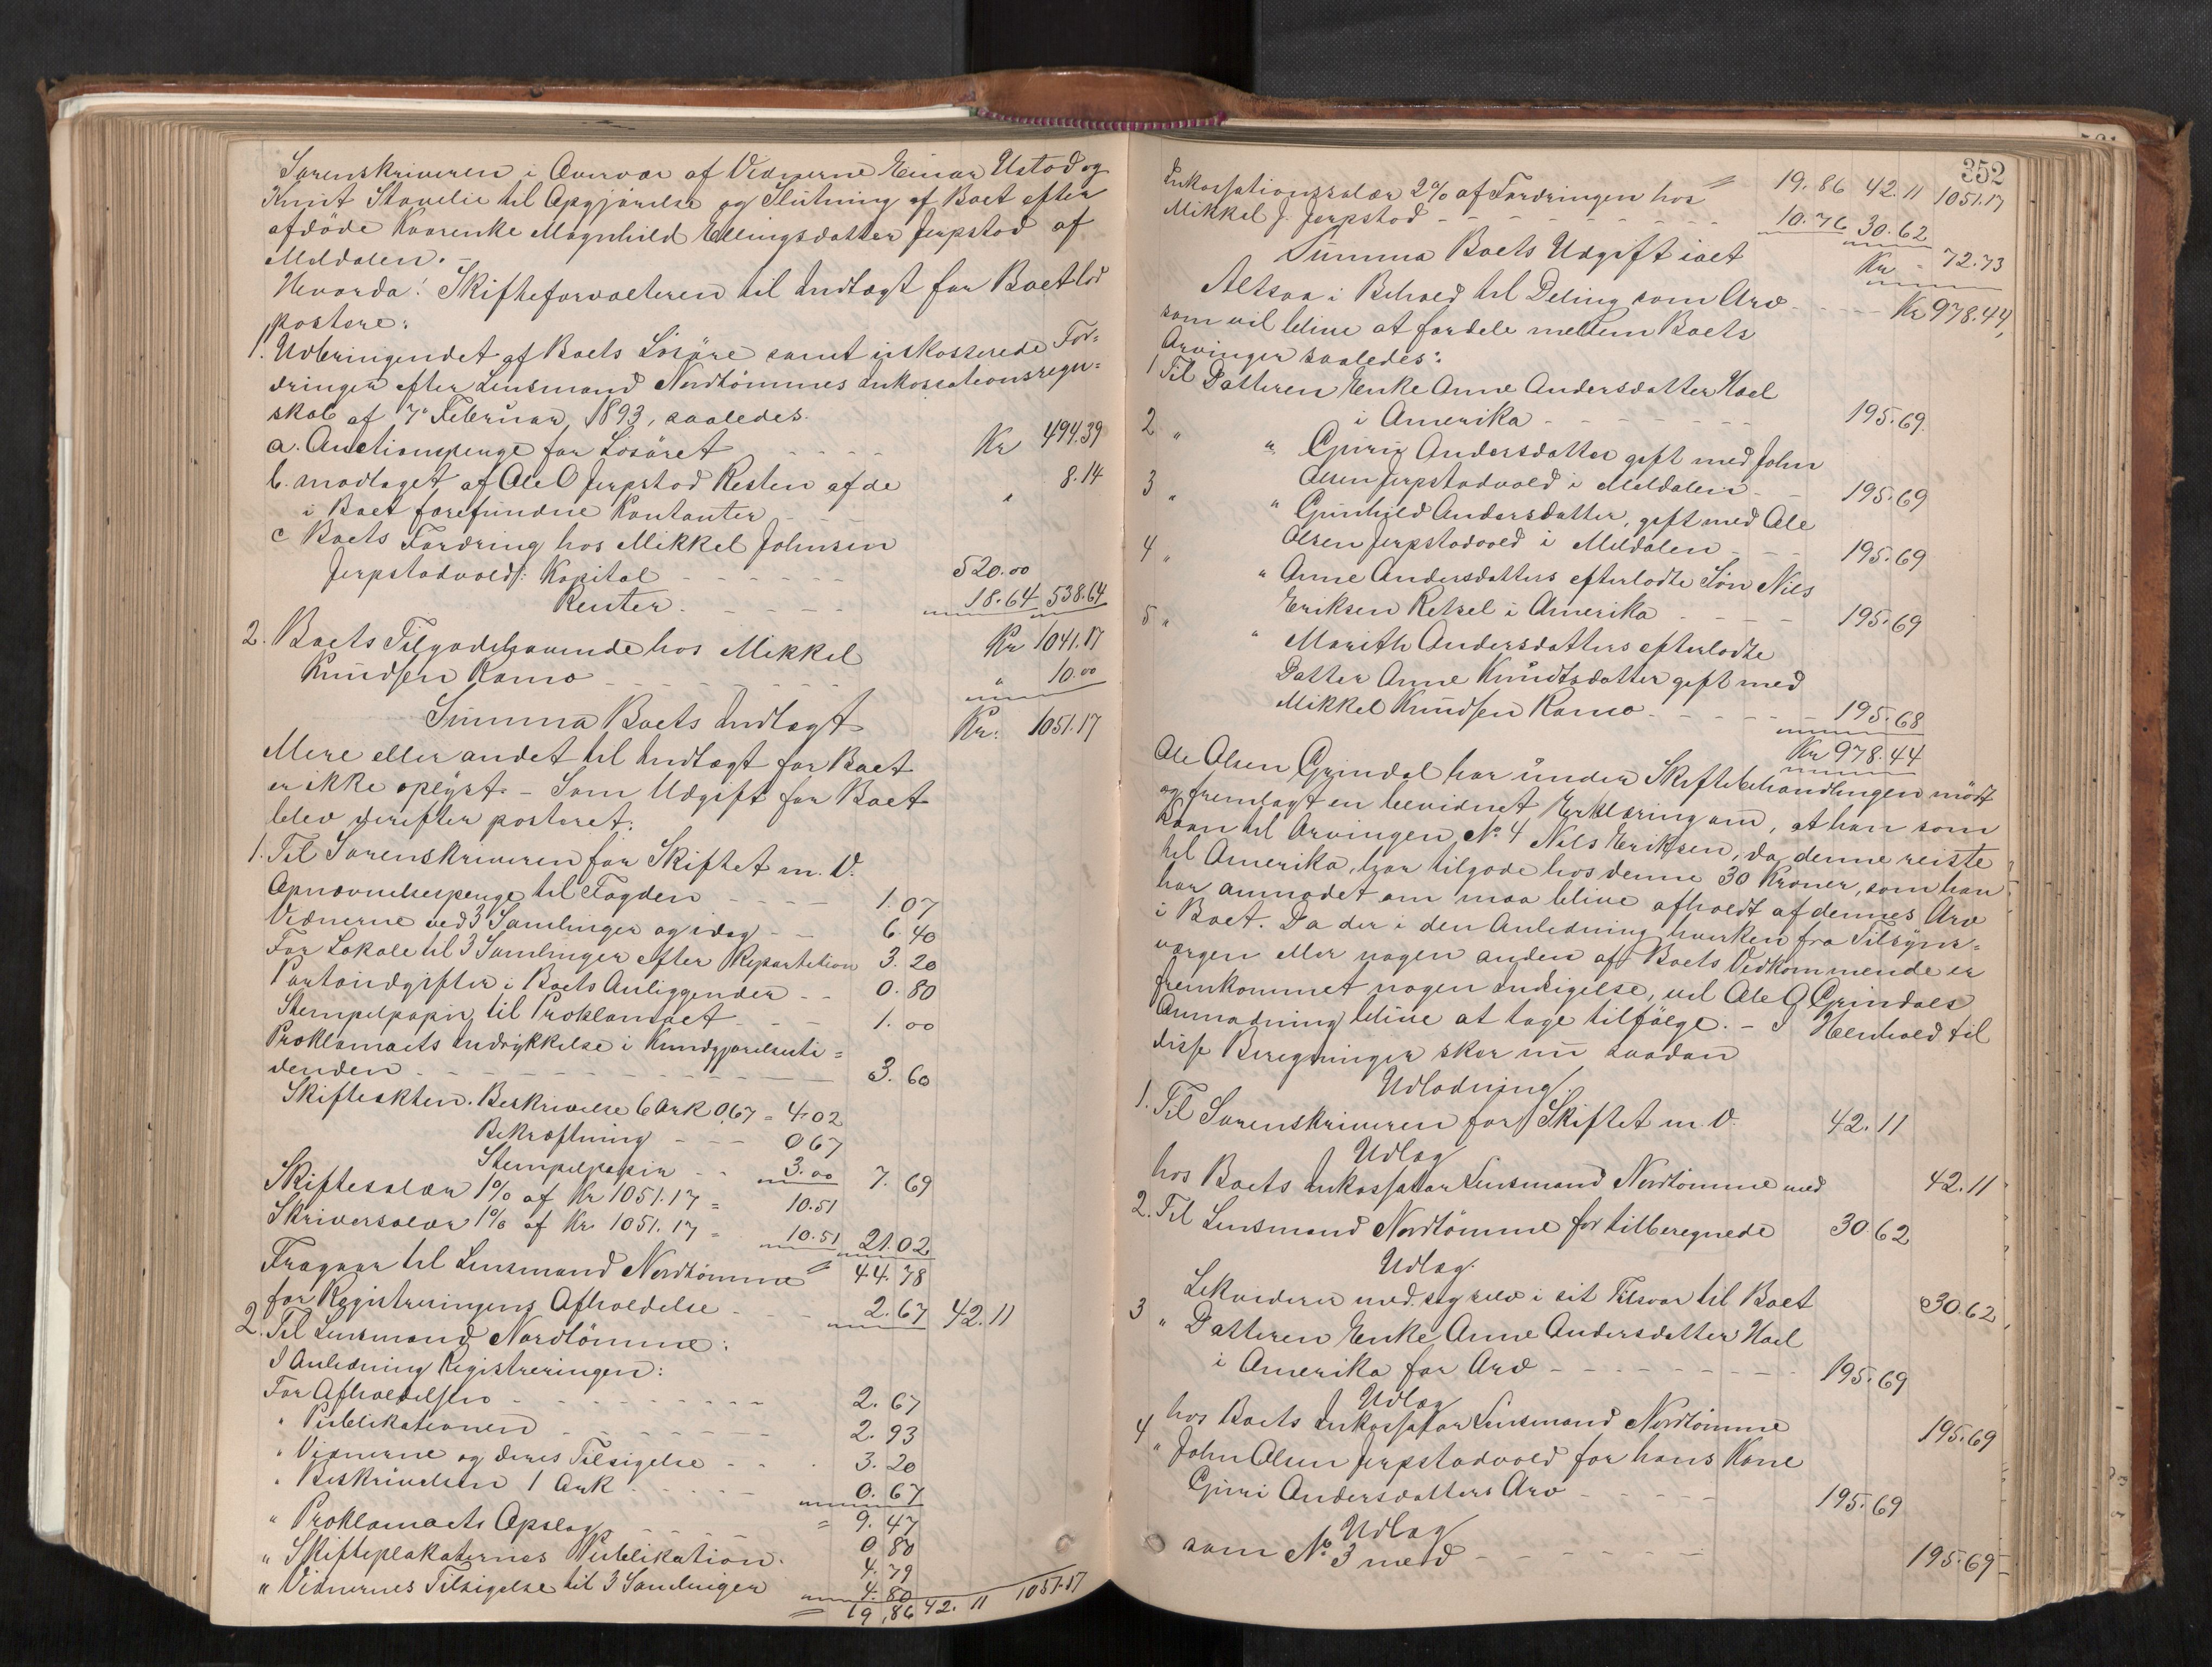 Sorenskriveren i Overvær af Vidnerne Einar Ustad og
Knut Stavelie til Opgjørelse og Slutning af Boet efter
afdøde Kaarenke Magnhild Ellingsdatter Jerpstad af
Meldalen. -
Hvorda: Skifteforvalteren til Indtægt for Boet lod
postere:
1. Udbringendet af Boets Løsøre samt inkasserede For=
dringer efter Lensmand Nordtømmes Inkassationsregn=
skab af 7de Februar 1893, saaledes.
a. Auctionspenge for Løsøret - - - - Kr 494.39
b. modtaget af Ole O Jerpstad Resten af de
i Boet forefundne Kontanter - - - " 8.14
c Boets Fordring hos Mikkel Johnsen
Jerpstadvold: Kapital - - - - - 520.00
Renter. - - - - 18.64 538.64
Kr 1041.17
2. Boets Tilgodehavende hos Mikkel
Knudsen Ramo - - - - - - " 10.00
Summa Boets Indtægt Kr. 1051.17
Mere eller andet til Indtægt for Boet
er ikke oplyst. - Som Udgift for Boet
blev derefter posteret:
1. Til Sorenskriveren for Skiftet m. V.
Opnævnelsespenge til Fogden - - - - 1.07
Vidnerne ved 3 Samlinger og idag - - 6.40
For Lokale til 3 Samlinger efter Repartition 3.20
Portoudgifter i Boets Anliggender - - 0.80
Stempelpapir til Proklamaet - - - 1.00
Proklamaets Indrykkelse i Kundgjørelsesti=
denden - - - - - - - - - 3.60
Skifteakten. Beskrivelse 6 Ark 0.67 = 4.02
Bekræftning - - - 0 67
Stempelpapir - - 3.00 7.69
Skiftesalær 1% af Kr 1051.17 = 10.51
Skriversalær 1% af Kr. 1051.17 = 10.51 21.02
= 44.78
Fragaar til Lensmand Nordtømme
for Registreringens Afholdelse - - 2.67 42.11
2. Til Lensmand Nordtømme:
I Anledning Registreringen:
For Afholdelsen - - - - - - - - 2.67
" Publikationen - - - - - - - 2.93
" Vidnerne og deres Tilsigelse - - . 3.20
" Beskrivelsen 1 Ark - - - - - 0.67
= 9.47
" Proklamaets Opslag - - - - - 0 80
" Skifteplakaternes Publikation. 4.79
" Vidnernes Tilsigelse til 3 Samlinger 4.80
= 19,86 42.11 1051.17
352
= 19.86 42.11 1051.17
Inkassationssalær 2% af Fordringen hos
Mikkel J. Jerpstad - - - - - - - - - 10.76 30.62
Summa Boets Udgift ialt Kr - 72.73
Altsaa i Behold til Deling som Arv - - - - Kr 978.44,
som vil blive at fordele mellem Boets
Arvinger saaledes:
1 Til Datteren Enke Anne Andersdatter Hoel
i Amerika - - - - - - - 195.69.
2 " " Guri Andersdatter gift med John
Olsen Jerpstadvold i Meldalen - - 195.69
3 " " Gunhild Andersdatter, gift med Ole
Olsen Jerpstadvold i Meldalen - - - 195.69
4 " " Anne Andersdatters efterladte Søn Nils
Eriksen Retsel i Amerika - - - - 195.69
5 " " Marith Andersdatters efterladte
Datter Anne Knudtsdatter gift med
Mikkel Knudsen Ramo - - - - - 195.68
Kr 978.44
Ole Olsen Grindal har under Skiftebehandlingen mødt
og fremlagt en bevidnet Erklæring om, at han som
Laan til Arvingen No. 4 Nils Eriksen, da denne reiste
til Amerika, har tilgode hos denne 30 Kroner, som han
har anmodet om maa blive afholdt af dennes Arv
i Boet. Da der i den Anledning hverken fra Tilsyns=
værgen eller nogen anden af Boets Vedkommende er
fremkommet nogen Indsigelse, vil Ole O Grindals
Anmodning blive at tage tilfølge. - I Henhold til
disse Beregninger sker nu saadan
Udlodning.
1. Til Sorenskriveren for Skiftet m. V. 42.11
Udlæg
hos Boets Inkassator Lensmand Nordtømme med 42.11
2. Til Lensmand Nordtømme for tilberegnede 30 62
Udlæg.
Likviderer med sig selv i sit Tilsvar til Boet 30.62
3 " Datteren Enke Anne Andersdatter Hoel
i Amerika for Arv - - - - - - - - - 195.69
Udlæg
hos Boets Inkassator Lensmand Nordtømme 195.69
4 " John Olsen Jerpstadvold for hans Kone
Guri Andersdatters Arv - - - - - 195.69
Udlæg
som No. 3 med - - - - - - 195.69